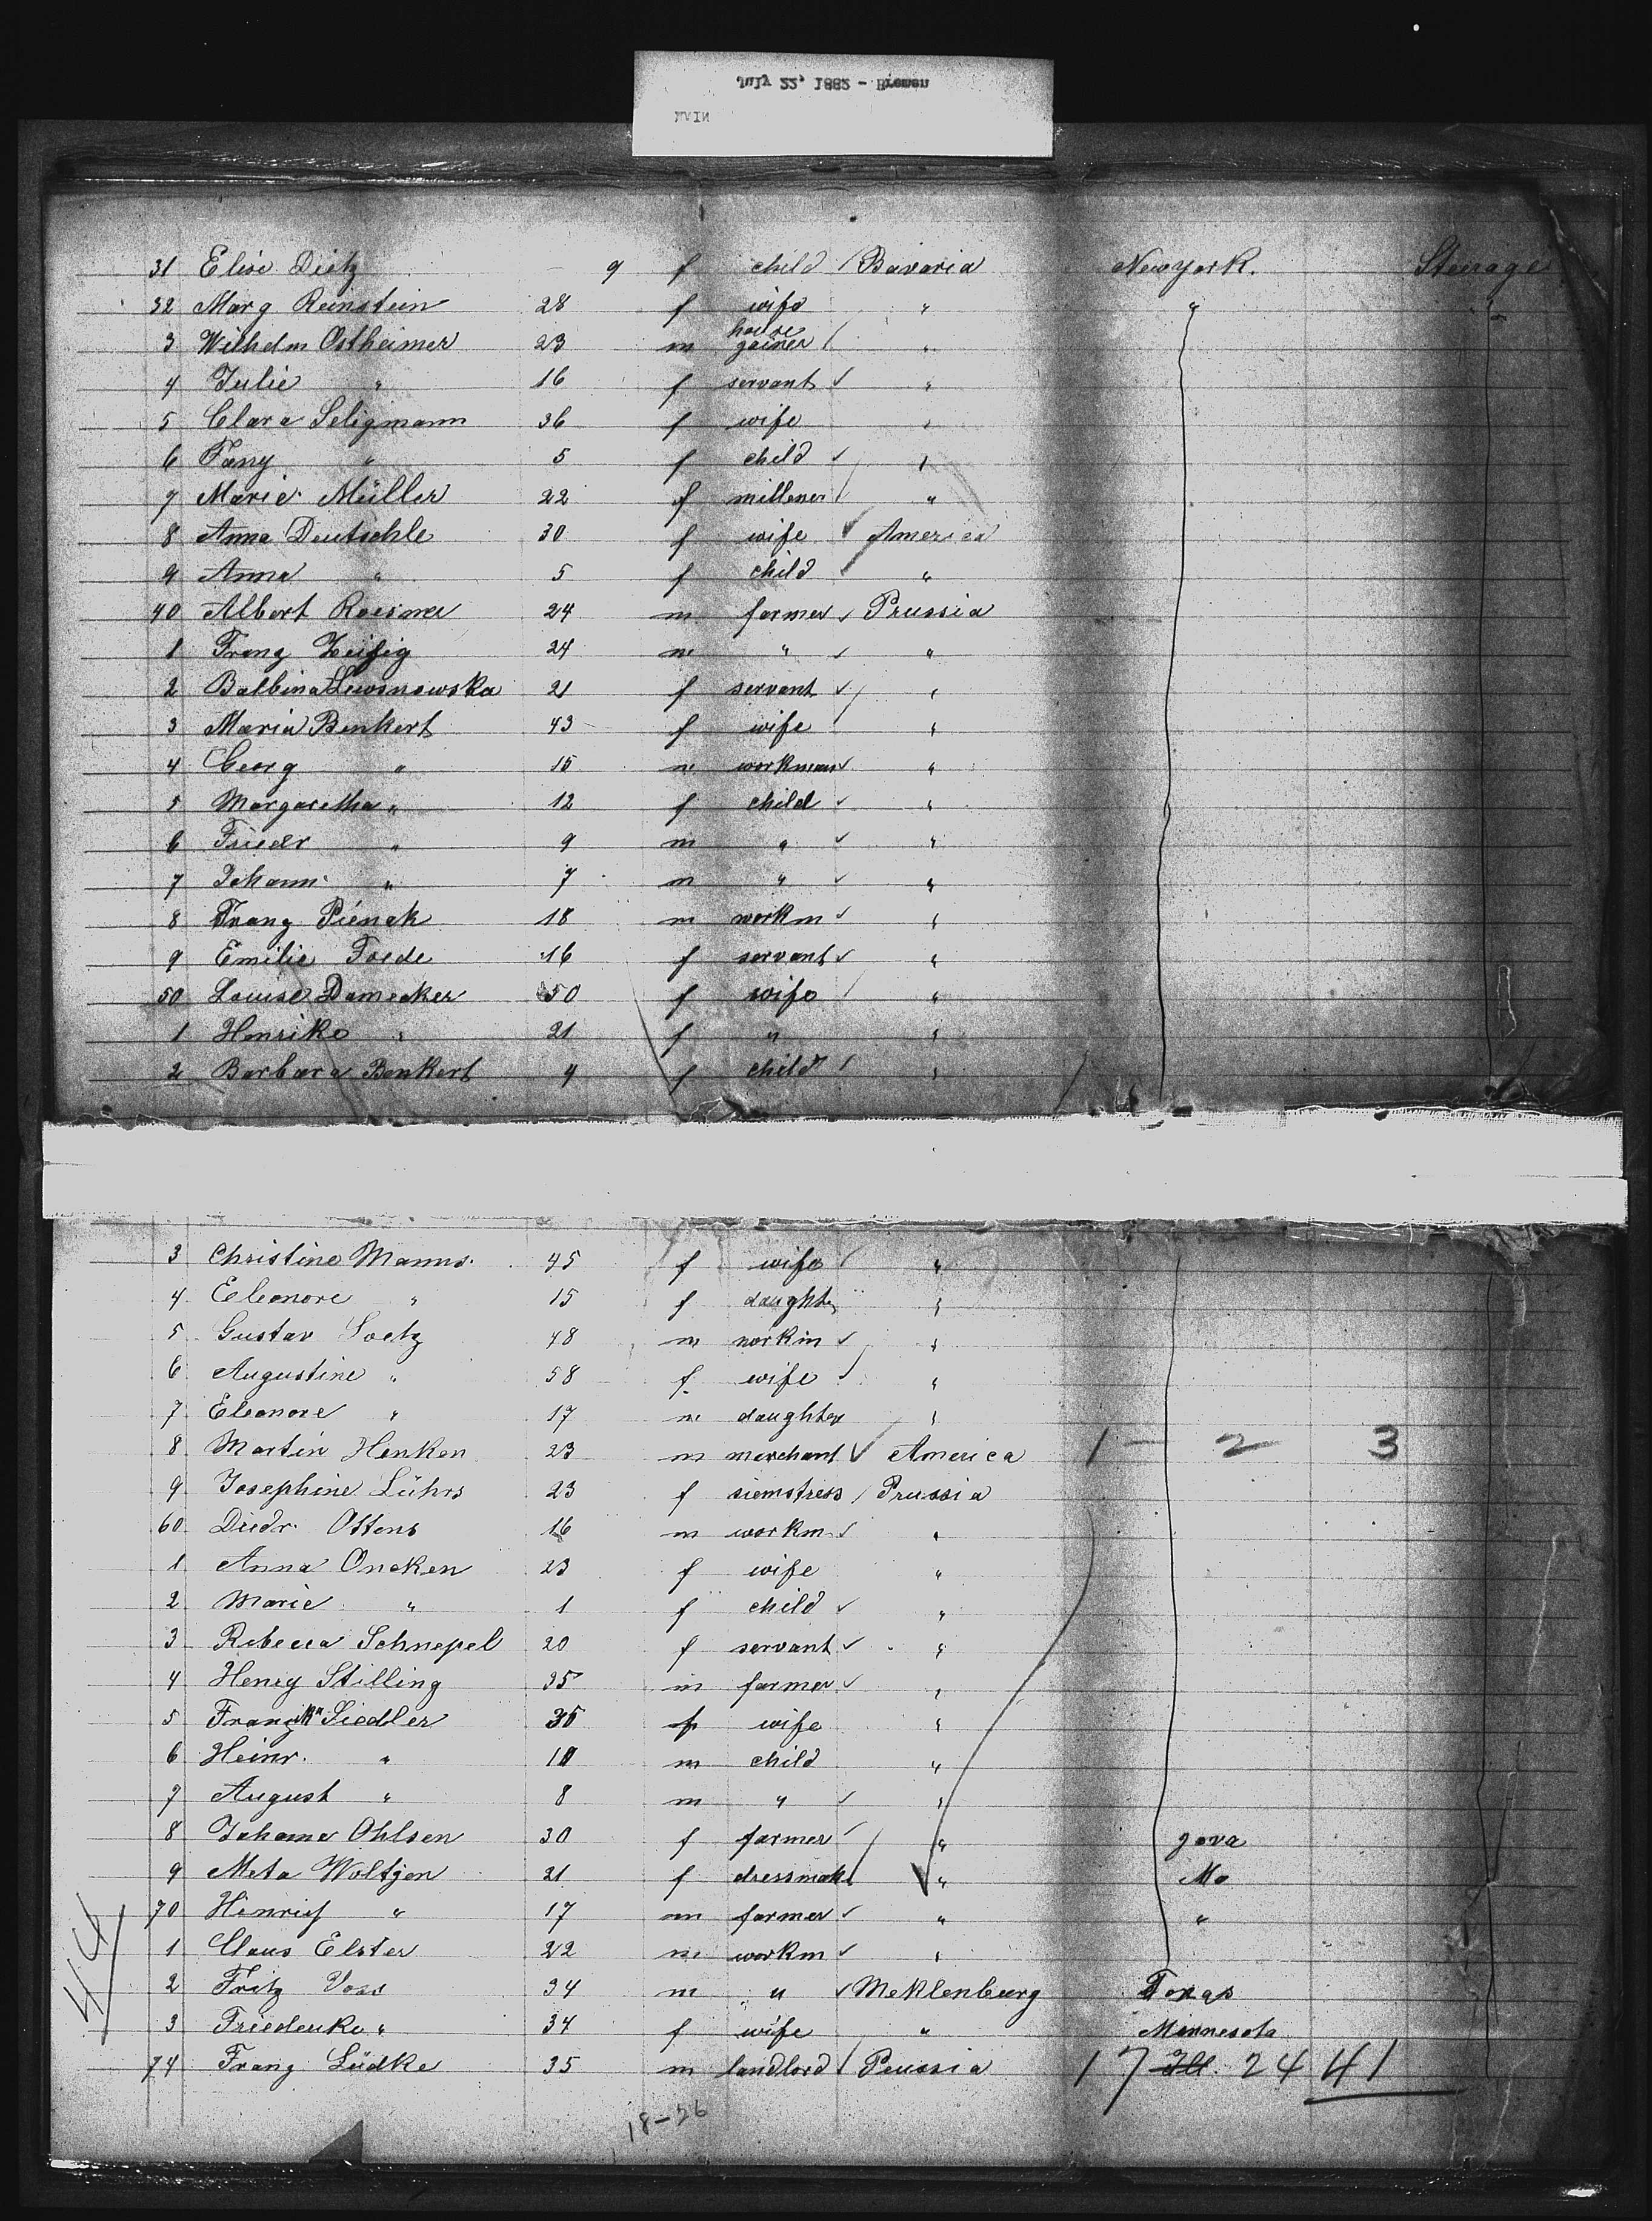 July 22, 1882 - Bremen
MAIN
31 Elise Dietz 9 f child Bavaria Newyork. Steerage
32 Marg Reinstein 28 f wife " " "
3 Wilhelm Ostheimer 23 m house gainer "
4 Julie " 16 f servant "
5 Clara Seligmann 36 f wife "
6 Fany " 5 f child "
7 Marie Müller 22 f millener "
8 Anna Deutschle 30 f wife America
9 Anna " 5 f child "
40 Albert Roesner 24 m farmer Prussia
1 Franz Zeisig 24 m " "
2 Balbina Lewsnowska 21 f servant "
3 Maria Benkert 43 f wife "
4 Georg " 15 m workman "
5 Margaretha " 12 f child "
6 Friedr " 9 m " "
7 Johann " 7 m " "
8 Franz Pienek 18 m workm "
9 Emilie Foede 16 f servant "
50 Louise Damecker 50 f wife "
1 Henrike " 21 f " "
2 Barbara Benkert 4 f child "
3 Christine Manns 45 f wife "
4 Eleonore " 15 f daughter "
5 Gustav Soetz 48 m workm "
6 Augustine " 58 f wife "
7 Eleonore " 17 m daughter "
8 Martin Henken 23 m merchant America 1 - 2 3
9 Josephine Lührs 23 f siemstress Prussia
60 Diedr. Ottens 16 m workm "
1 Anna Oncken 23 f wife "
2 Marie " 1 f child "
3 Rebecca Schnepel 20 f servant "
4 Henry Stilling 35 m farmer "
5 Franzka Siedler 35 f wife "
6 Heinr. " 10 m child "
7 August " 8 m " "
8 Johanne Ohlsen 30 f farmer " Jova
9 Meta Woltjen 21 f dressmak " Mo
70 Hinrich " 17 m farmer " "
1 Claus Elster 22 m workm "
2 Fritz Voss 34 m " Meklenburg Texas
3 Friederike " 34 f wife " Minnesota
74 Franz Lüdke 35 m landlord Prussia 17 Ill. 24 41
44
18-26